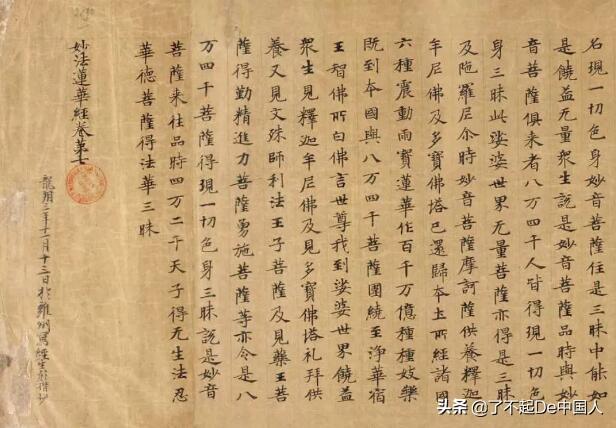 名現一切色身妙音菩薩住是三昧中能如
是饒益无量眾生說是妙音菩薩品時與妙
音菩薩俱来者八万四千人皆得現一切色
身三昧此娑婆世界無量菩薩亦得是三昧
及陁羅尼尒時妙音菩薩摩訶薩供養釋迦
牟尼佛及多寶佛塔已還歸本土所經諸國
六種震動雨寶蓮華作百千万億種種妓樂
既到本國與八万四千菩薩圍繞至淨華宿
王智佛所白佛言世尊我到娑婆世界饒益
眾生見釋迦牟尼佛及見多寶佛塔礼拜供
養又見文殊師利法王子菩薩及見藥王菩
薩得勤精進力菩薩勇施菩薩等亦令是八
万四千菩薩得現一切色身三昧說是妙音
菩薩来往品時四万二千天子得无生法忍
華德菩薩得法華三昧
妙法蓮華經卷第七
龍朔三年十一月十三日於雍州寫經生彭楷抄
头条 @了不起De中国人